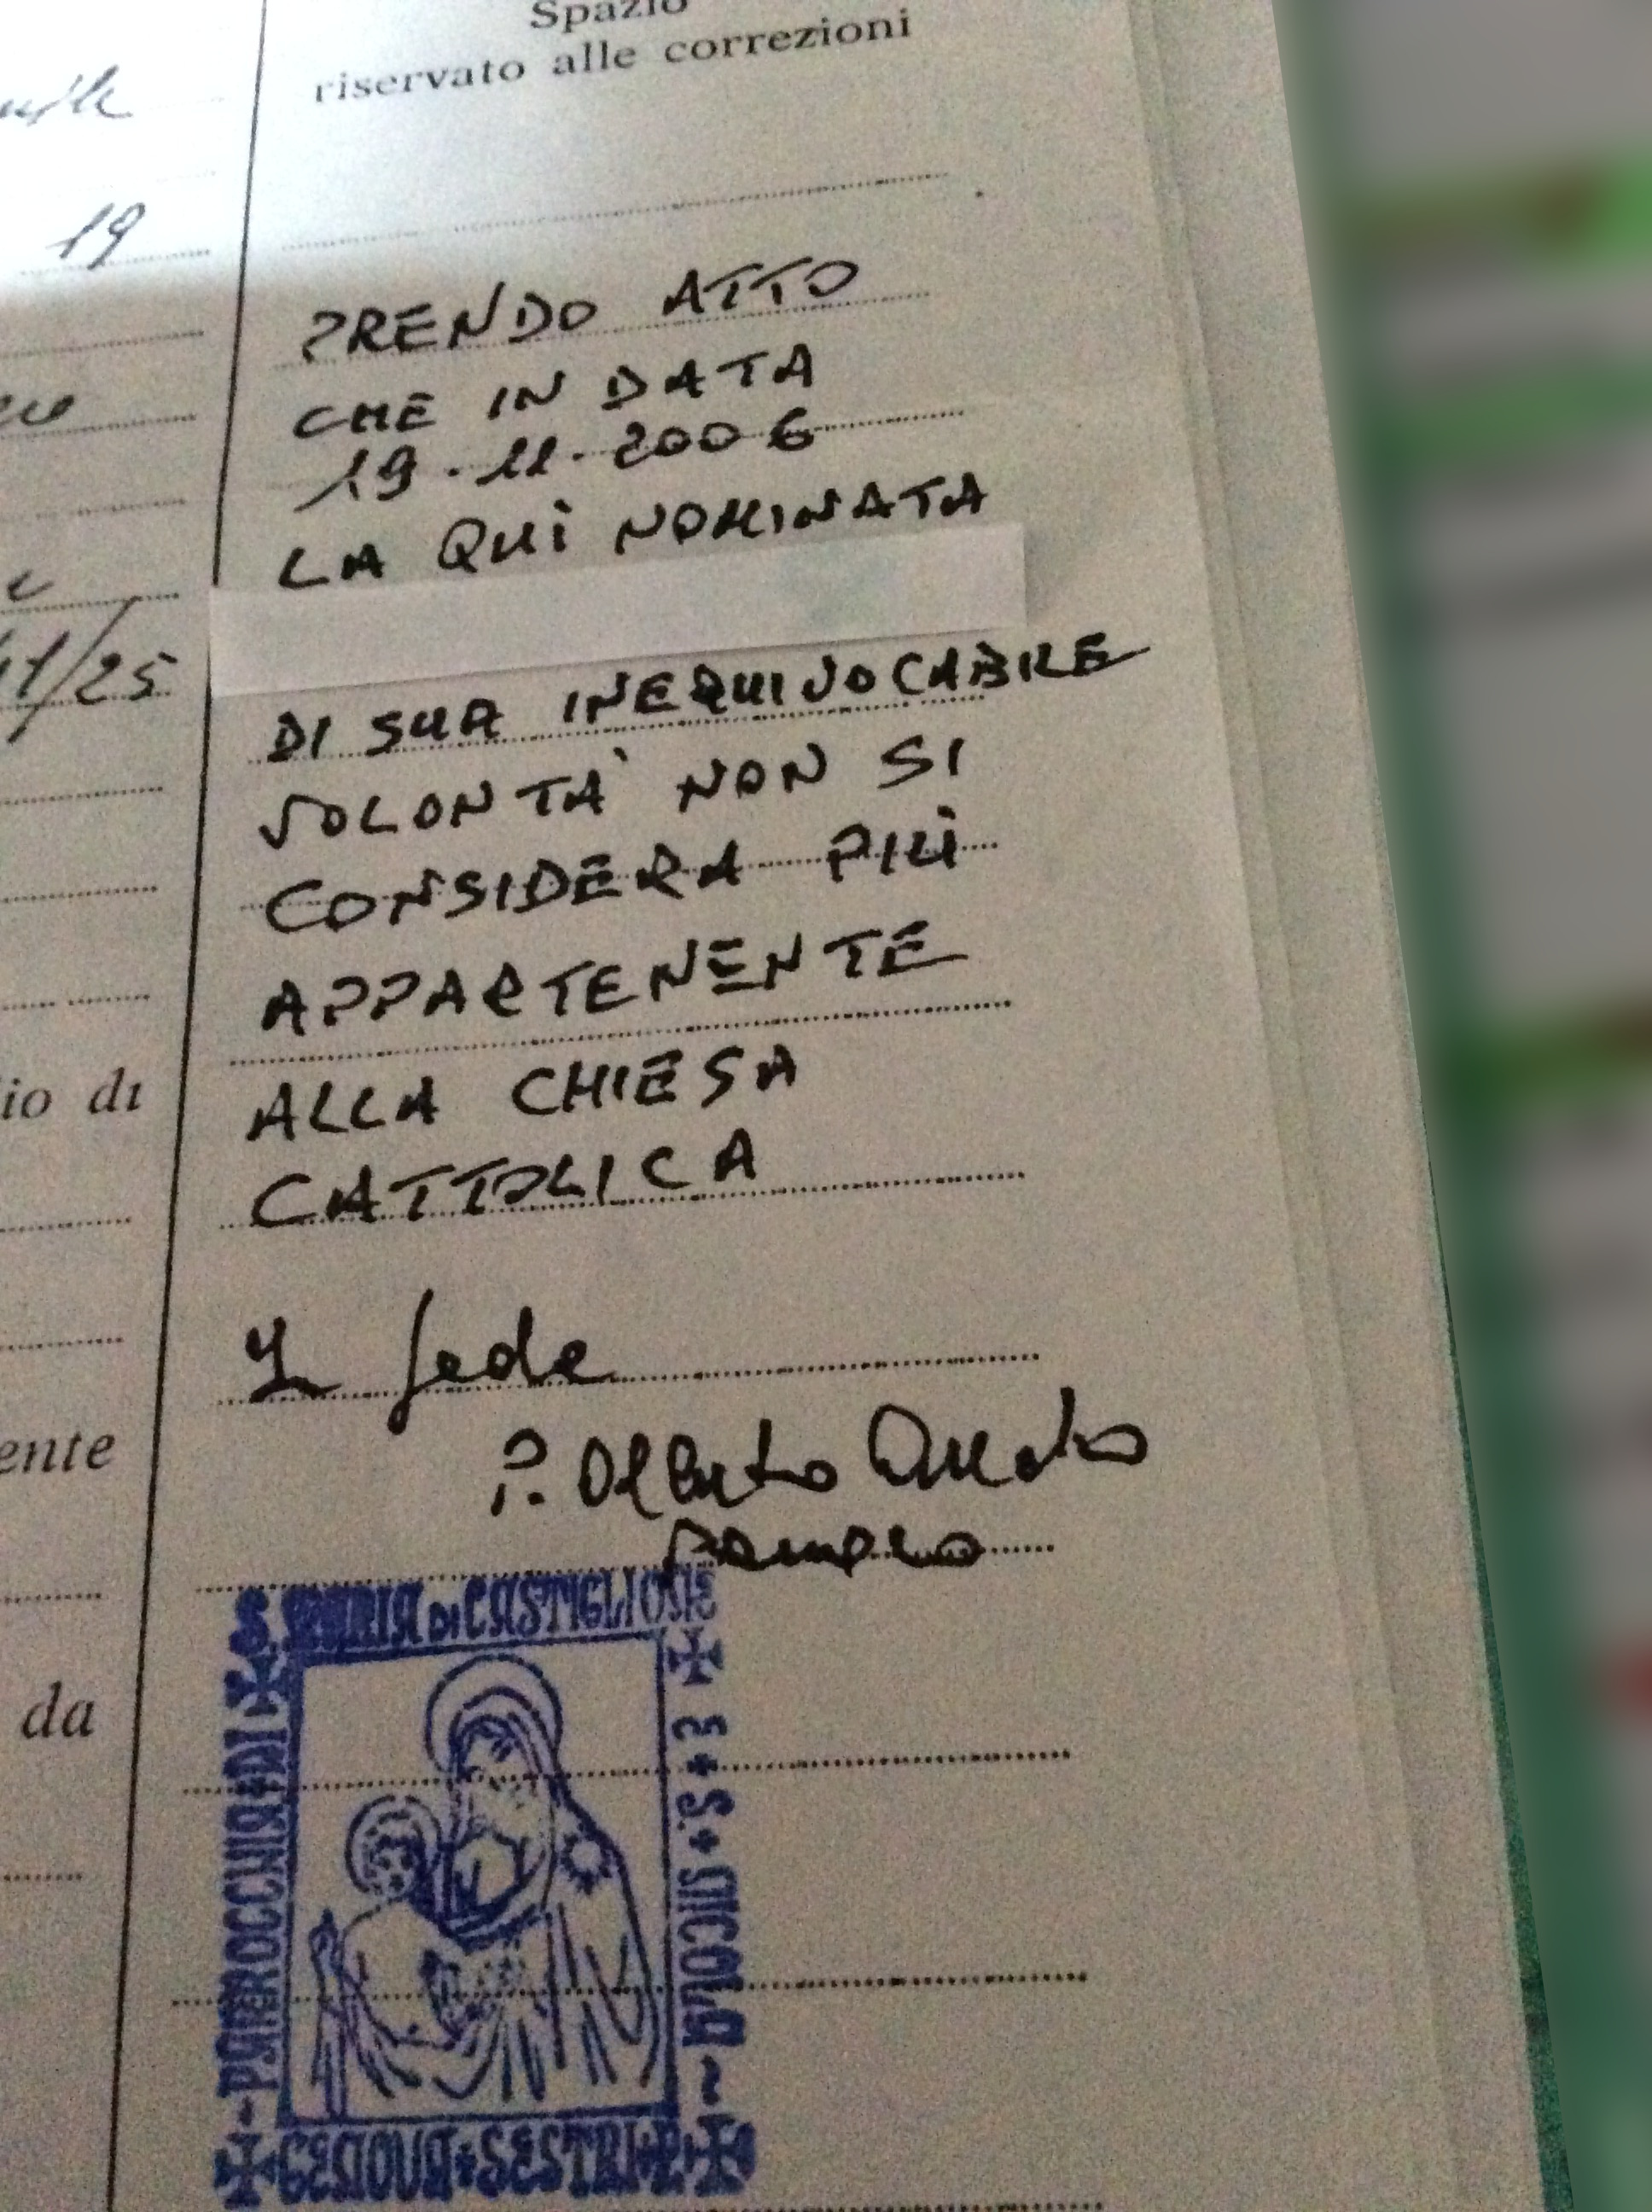 Spazio
riservato alle correzioni
19
PRENDO ATTO
CHE IN DATA
19.11.2006
LA QUÌ NOMINATA
11/25
DI SUA INEQUIVOCABILE
VOLONTÀ NON SI
CONSIDERA PIÙ
APPARTENENTE
ALLA CHIESA
CATTOLICA
io di
In fede
ente
P. Alberto
da
S. MARIA DI CASTIGLIONE
E S. NICOLA
PARROCCHIA DI
GENOVA SESTRI P.